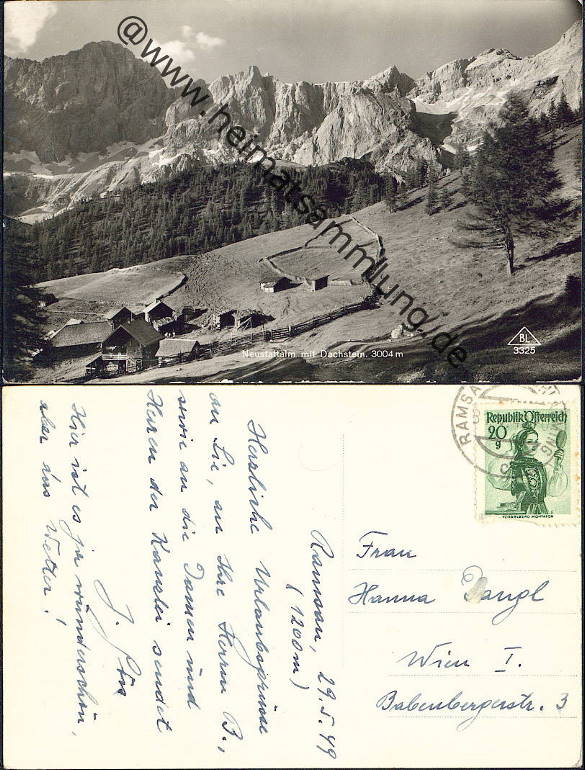 @www.heimatsammlung.de
Neustattalm mit Dachstein 3004 m
BL
3325
RAMSA
Republik Österreich
20
g
Ramsau, 29.5.49
(1200m)
Herzliche Urlaubsgrüsse
an Sie, an Ihre Herrn B.,
sowie an die Damen und
Herren der Kanzlei sendet
Hier ist es ja wunderschön,
aber das Wetter!
Frau
Hanna Dangl
Wien I.
Babenbergerstr. 3